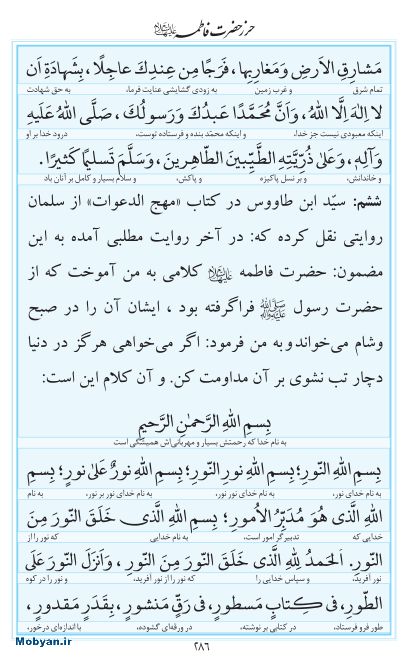 حرز حضرت فاطمه علیهاالسلام
مَشارِقِ الاَرضِ وَمَغارِبِها، فَرَجًا مِن عِندِكَ عاجِلًا، بِشَهادَةِ اَن
تمام شرق و غرب زمین به زودی گشایشی عنایت فرما، به حق شهادت
لا اِلهَ اِلَّا اللهُ، وَاَنَّ مُحَمَّدًا عَبدُكَ وَرَسولُكَ، صَلَّى اللهُ عَلَيهِ
اینکه معبودی نیست جز خدا، و اینکه محمّد بنده و فرستاده توست، درود خدا بر او
وَآلِهِ، وَعَلىٰ ذُرِّيَّتِهِ الطَّيِّبينَ الطّاهِرينَ، وَسَلَّمَ تَسليمًا كَثيرًا.
و خاندانش، و بر نسل پاکیزه و پاکش، و سلام بسیار و کامل بر آنان باد
ششم: سیّد ابن طاووس در کتاب «مهج الدعوات» از سلمان
روایتی نقل کرده که: در آخر روایت مطلبی آمده به این
مضمون: حضرت فاطمه علیهاالسلام کلامی به من آموخت که از
حضرت رسول ﷺ فراگرفته بود ، ایشان آن را در صبح
وشام می‌خواندوبه من فرمود: اگر می‌خواهی هرگز در دنیا
دچار تب نشوی بر آن مداومت کن. و آن کلام این است:
بِسمِ اللهِ الرَّحمٰنِ الرَّحيمِ
به نام خدا که رحمتش بسیار و مهربانی‌اش همیشگی است
بِسمِ اللهِ النّورِ؛ بِسمِ اللهِ نورِ النّورِ؛ بِسمِ اللهِ نورٌ عَلىٰ نورٍ؛ بِسمِ
به نام خدای نور، به نام خدای نور نور، به نام خدای نور بر نور، به نام
اللهِ الَّذى هُوَ مُدَبِّرُ الاُمورِ؛ بِسمِ اللهِ الَّذى خَلَقَ النّورَ مِنَ
خدایی که تدبیرگر امور است، به نام خدایی که نور را از
النّورِ. اَلحَمدُ لِلّٰهِ الَّذى خَلَقَ النّورَ مِنَ النّورِ ، وَاَنزَلَ النّورَ عَلَى
نور آفرید، و سپاس خدایی را که نور را از نور آفرید، و نور را در کوه
الطّورِ، فى كِتابٍ مَسطورٍ، فى رَقٍّ مَنشورٍ، بِقَدَرٍ مَقدورٍ،
طور فرو فرستاد، در کتابی بر نوشته، در ورقه‌ای گشوده، با اندازه‌ای درخور،
۲۸۶
Mobyan.ir